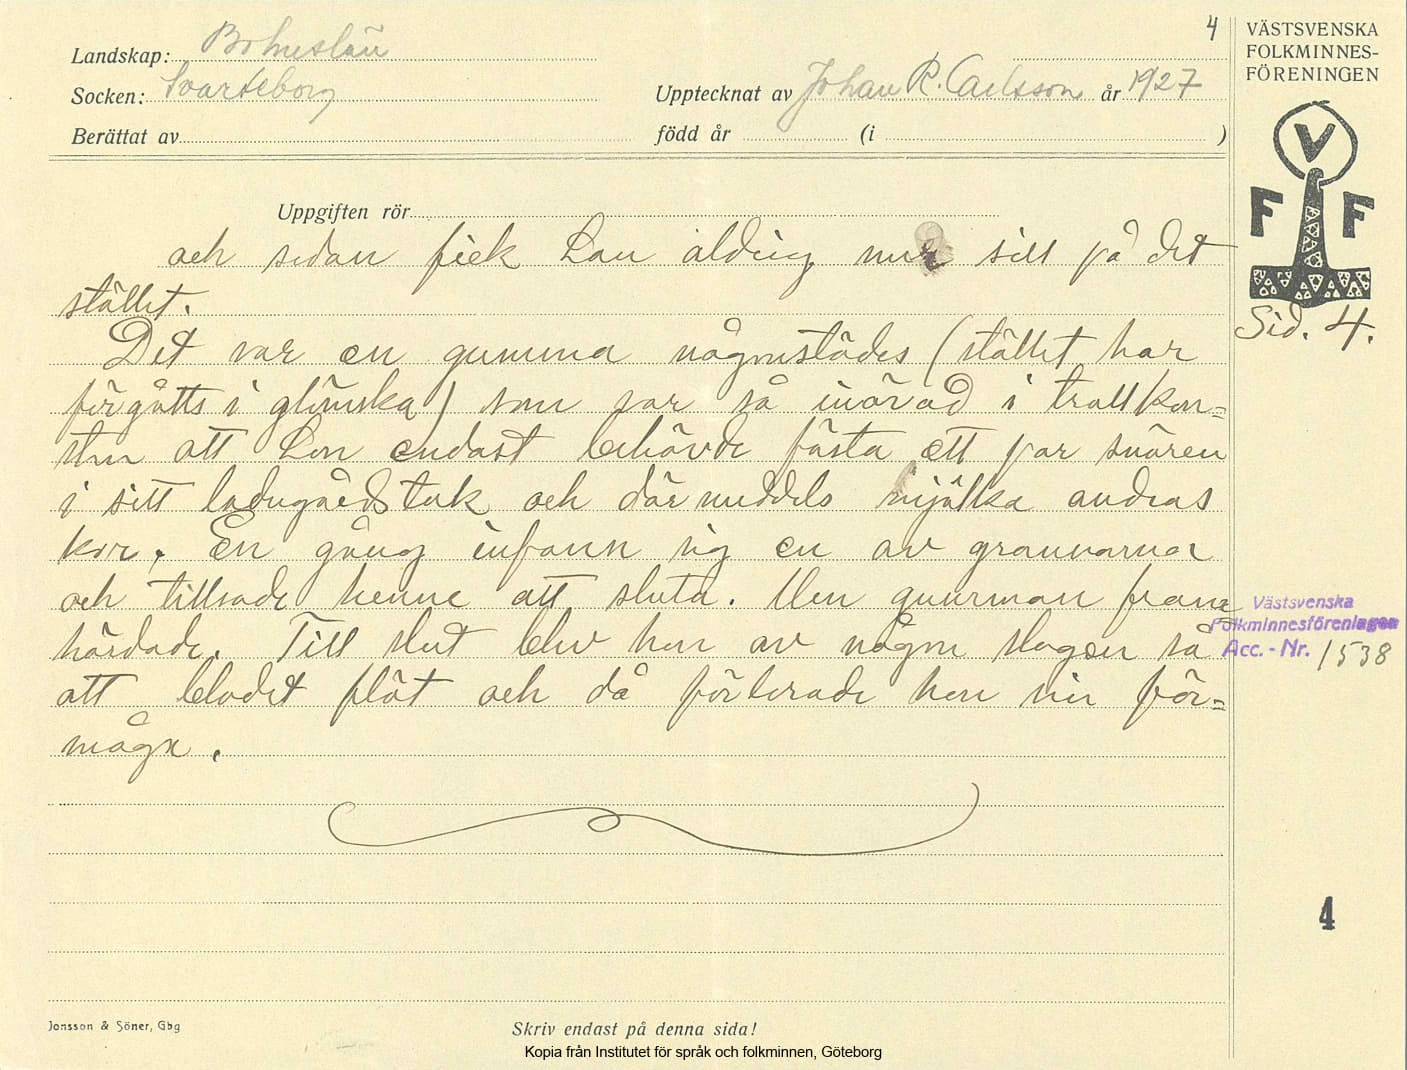 4
VÄSTSVENSKA
FOLKMINNES-
FÖRENINGEN
Landskap: Bohuslän
Socken: Svarteborg
Upptecknat av Johan R. Carlsson år 1927
Berättat av
född år (i )
V
F F
Uppgiften rör
och sedan fick han aldrig mer sill på det
stället.
Sid. 4.
Det var en gumma någonstädes (stället har
förgätts i glömska) som var så inövad i trollkon=
sten att hon endast behövde fästa ett par snören
i sitt ladugårdstak och därmeddels mjölka andras
kor. En gång infann sig en av grannarna
och tillsade henne att sluta. Men gumman fram
härdade. Till slut blev hon av någon slagen så
att blodet flöt och då förlorade hon sin för=
måga.
Västsvenska
Folkminnesföreningen
Acc.-Nr. 1538
4
Jonsson & Söner, Gbg
Skriv endast på denna sida!
Kopia från Institutet för språk och folkminnen, Göteborg